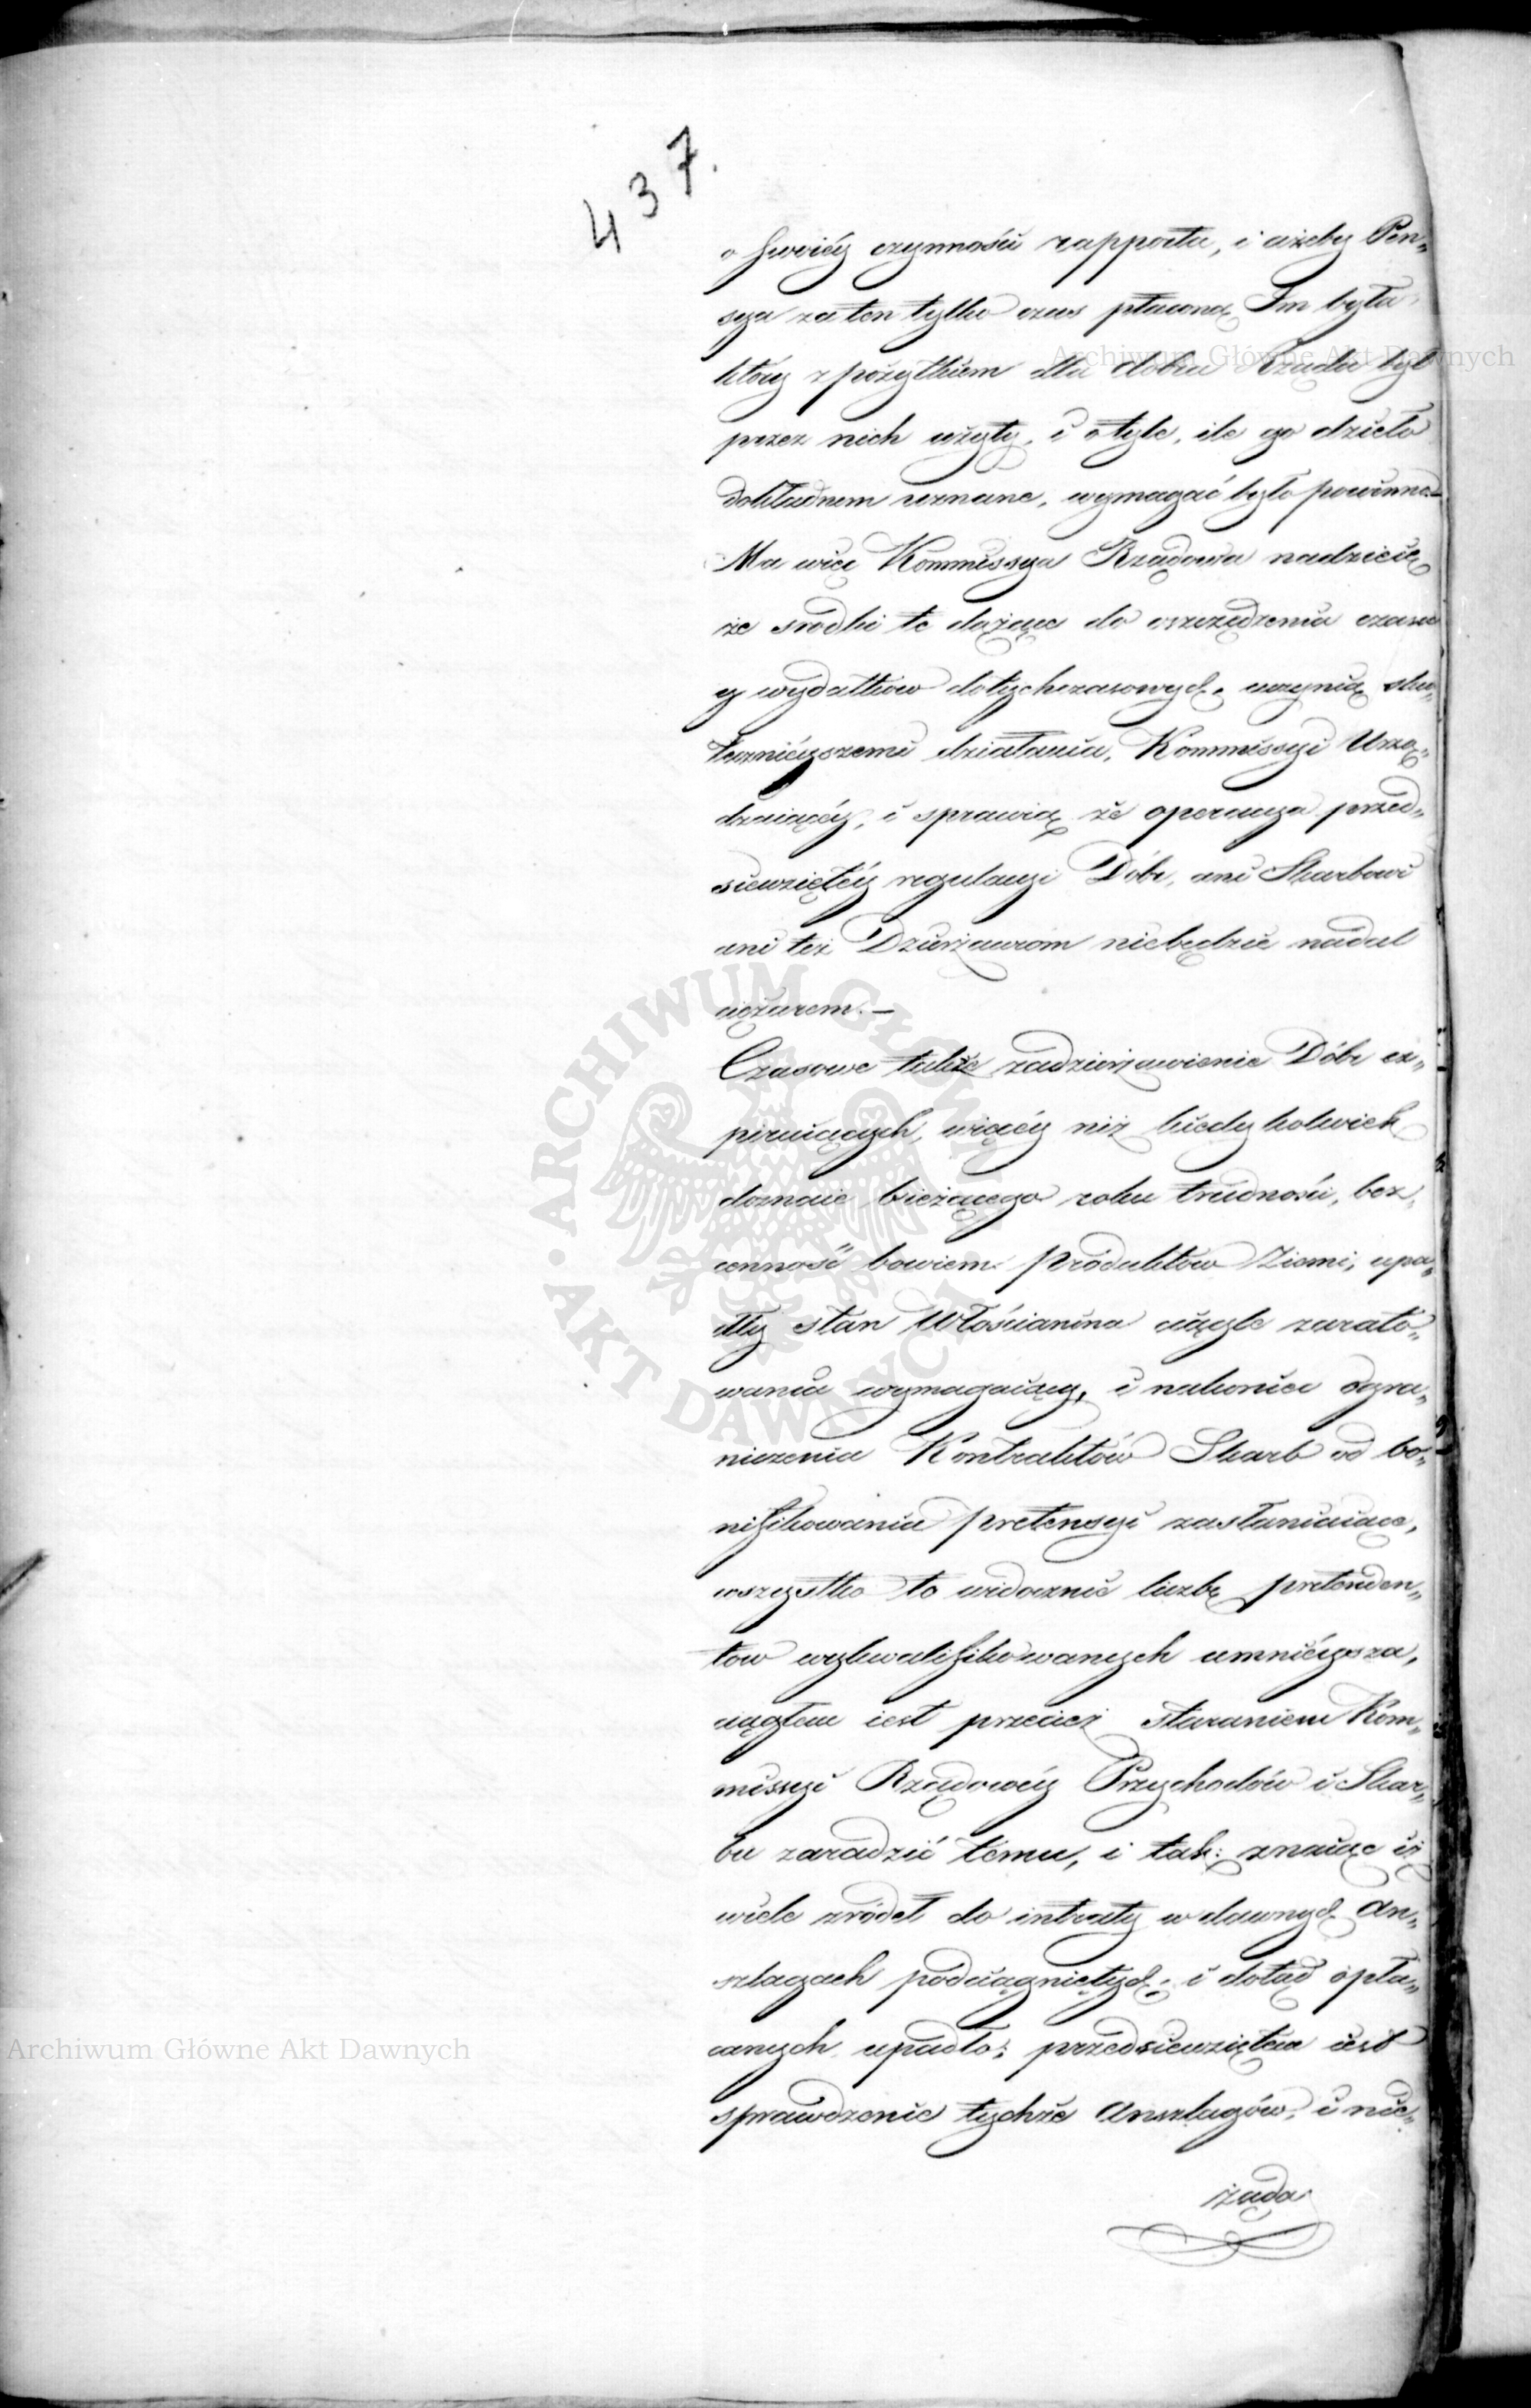 437.
o swoiéy czynności rapporta, i ażeby Pen„
sya za ten tylko czas płaconą Im była
który z pożytkiem dla dobra Rządu był
przez nich użyty, i o tyle, ile go dzieło
dokładnem uznane, wymagać było powinno
Ma więc Kommissya Rządowa nadzieię
że srodki te dążące do oszczędzenia czasu
y wydatków dotychczasowych, uczynią sku„
tecznieyszemi działania, Kommissyi Urzą„
dzaiącéy, i sprawią że operacya przed„
siewziętéy regulacyi Dóbr, ani Skarbowi
ani też Dzierżawcom niebędzie nadal
ciężarem. —
Czasowe także zadzierżawienie Dóbr ex„
piruiących, więcéy niż kiedykolwiek
doznaie bieżącego roku trudności, bez„
cenność bowiem produktów Ziemi, upa„
dły stan Włościanina ciągle zarato„
wania wymagaiący, i nakoniec ogra„
niczenia Kontraktów Skarb od bo„
nifikowania pretensyi zasłaniaiące,
wszystko to widocznie liczbę pretenden„
tow wykwalifikowanych umnieysza,
ciągłem iest przecież staraniem Kom„
missyi Rządowéy Przychodów i Skar„
bu zaradzić temu, i tak: znaiąc iż
wiele zródeł do intraty w dawnych An„
szlagach podciągniętych, i dotąd opła„
canych upadło; przedsiewziętem iest
sprawdzenie tychże Anszlagów, i nie„
żąda
Archiwum Główne Akt Dawnych
Archiwum Główne Akt Dawnych
ARCHIWUM GŁÓWNE • AKT DAWNYCH •